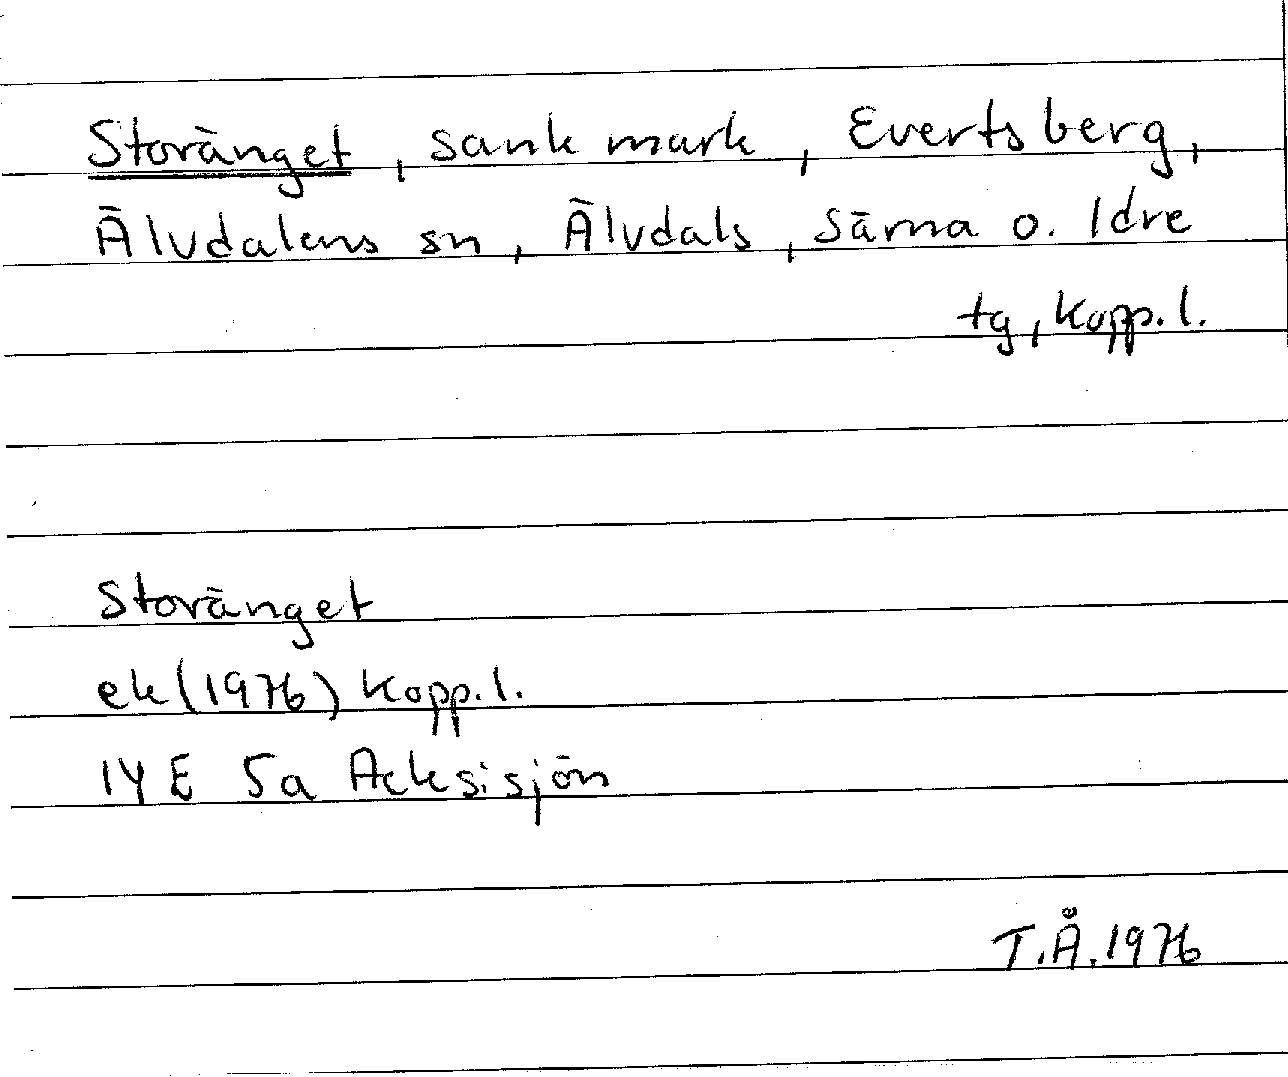 Storänget, sank mark, Evertsberg,
Älvdalens sn, Älvdals, Särna o. Idre
tg, Kopp. l.
Storänget
ek (1976) Kopp. l.
14 E 5a Acksisjön
T.Å. 1976